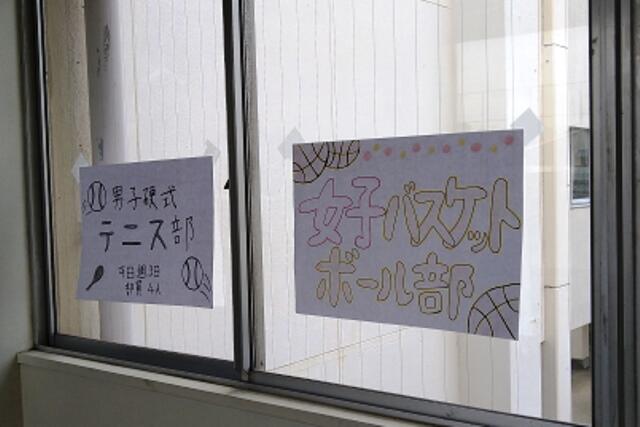 男子硬式
テニス部
平日週3日
部員4人
女子バスケット
ボール部